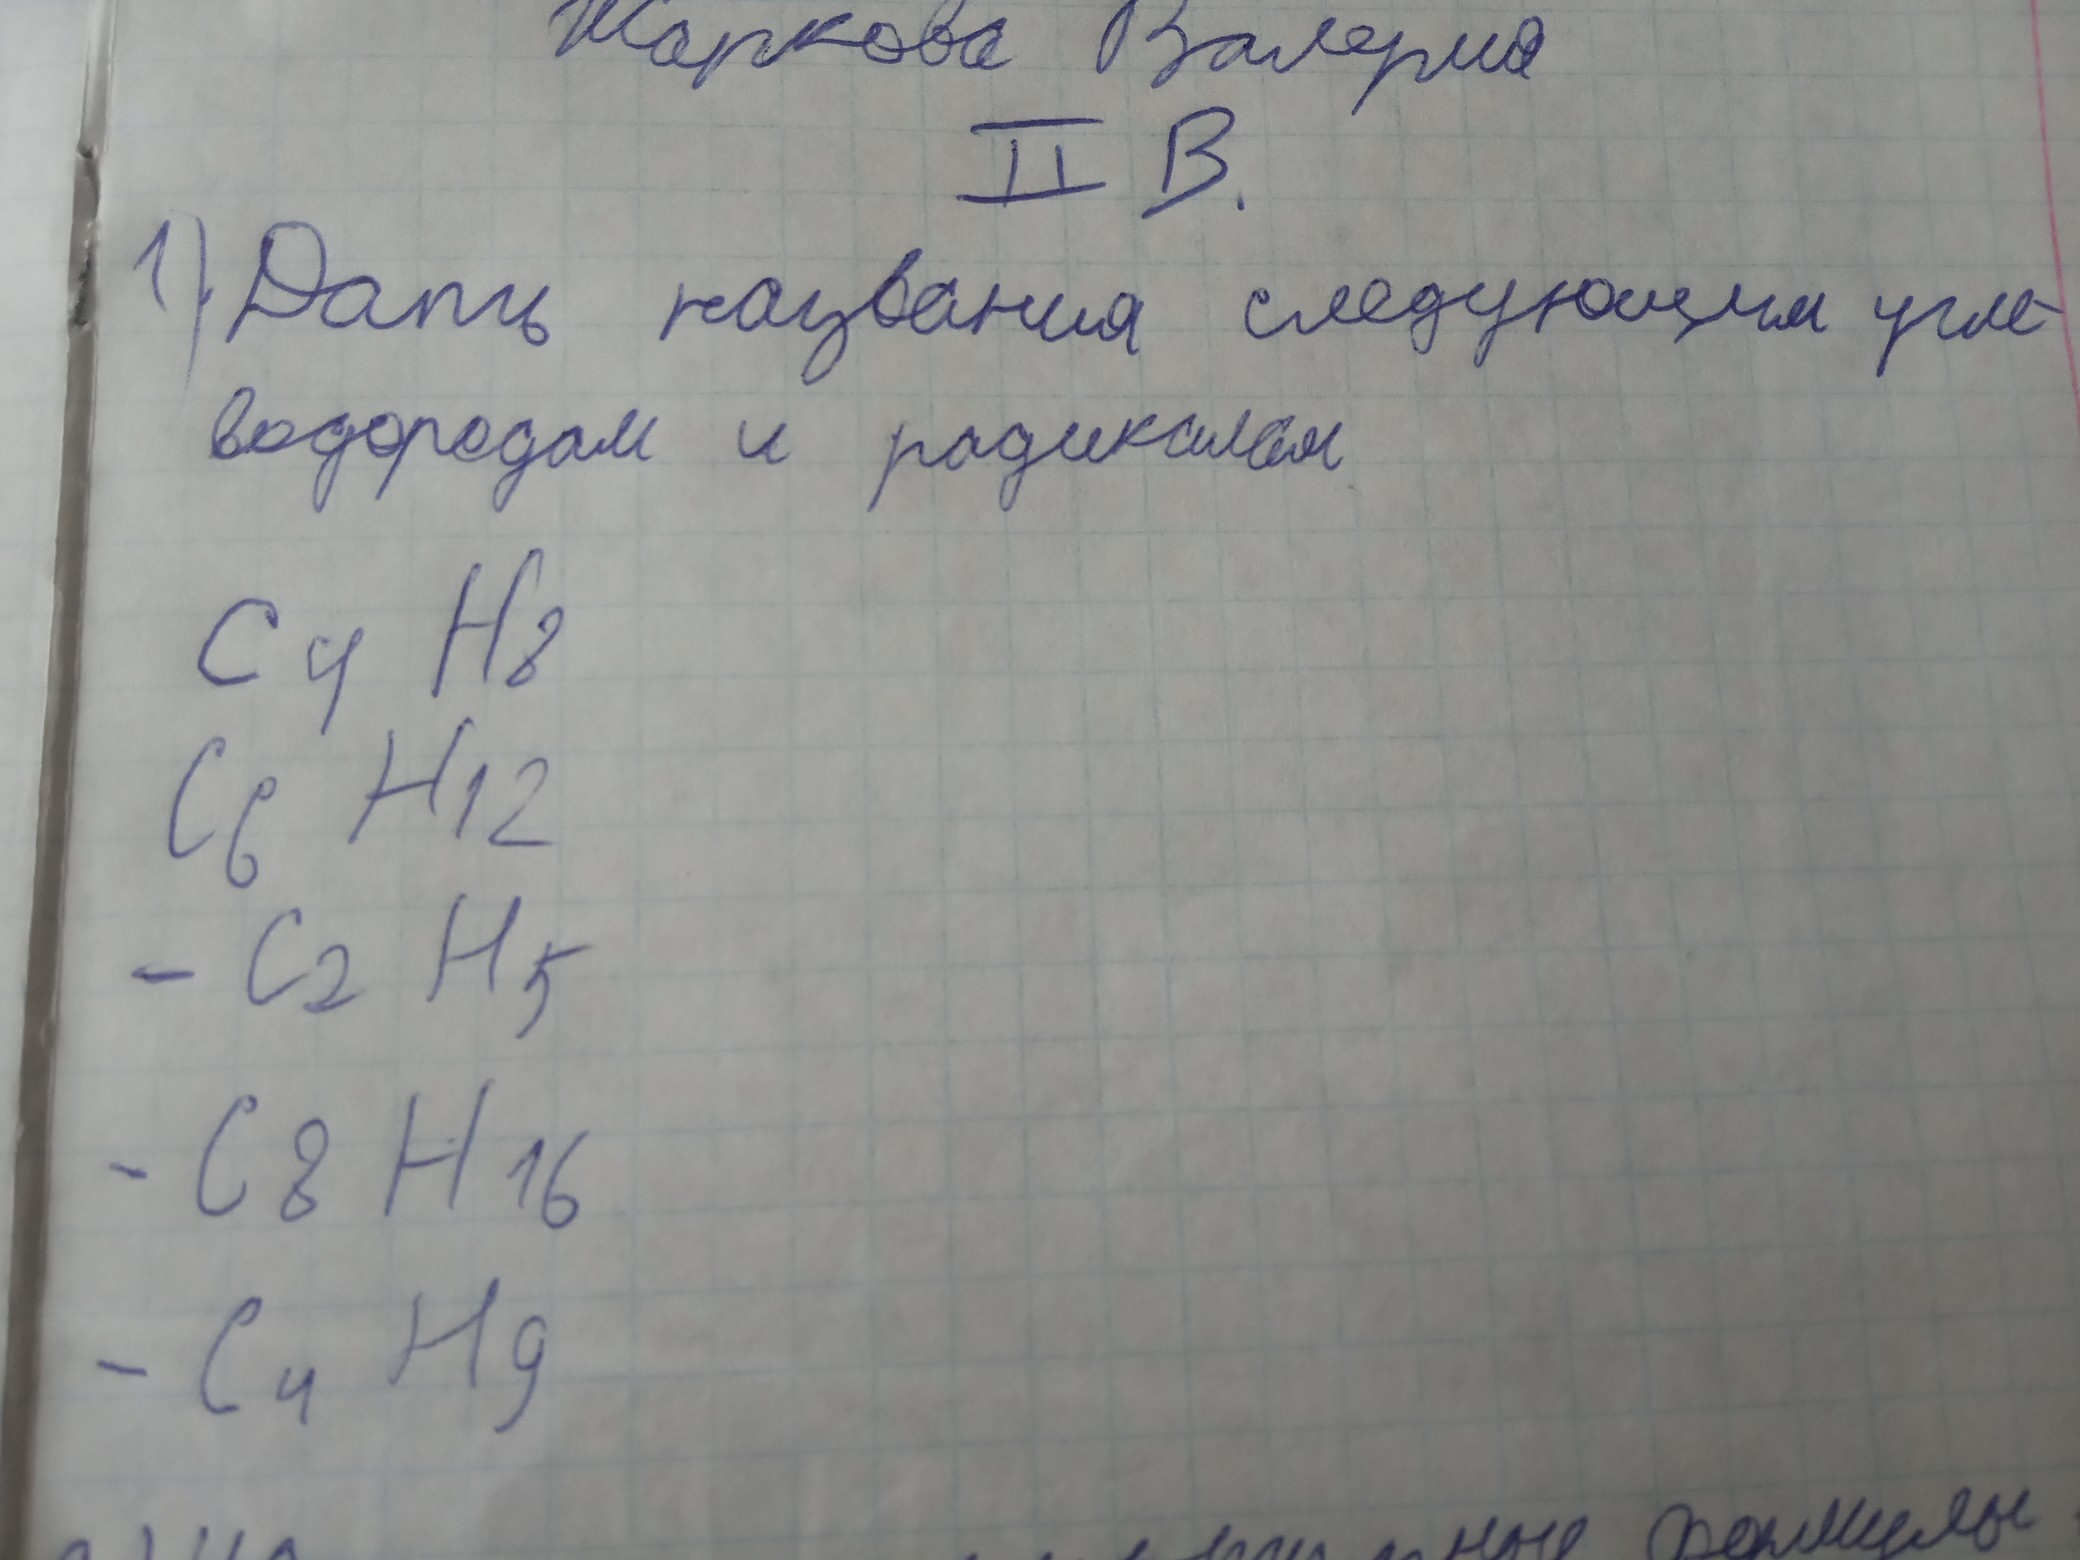 Жаркова Валерия
II В.
1) Дать названия следующим угле-
водородам и радикалам
C4 H8
C6 H12
- C2 H5
- C8 H16
- C4 H9
формулы